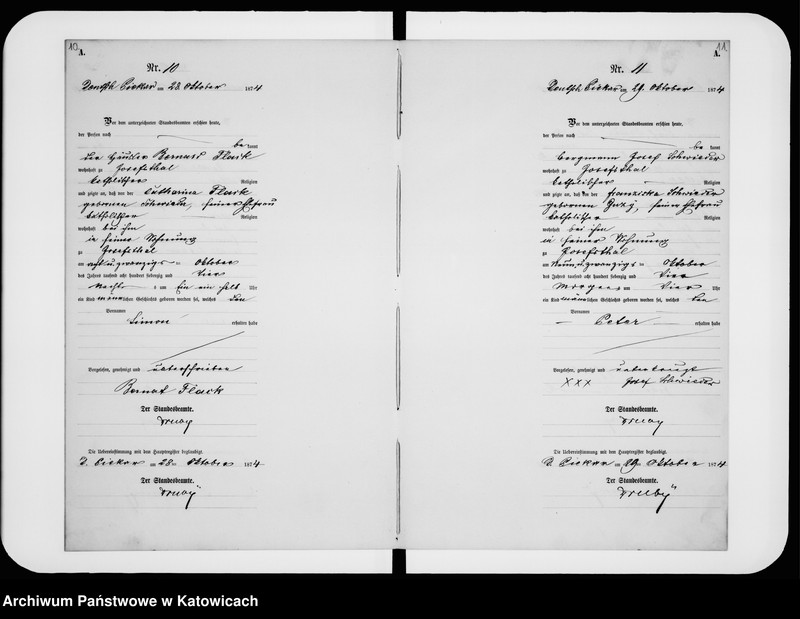 10
A.
Nr. 10
Deutsch Piekar am 28 Oktober 1874
Vor dem unterzeichneten Standesbeamten erschien heute,
der Person nach
be kannt
der Häusler Bernard Flack
wohnhaft zu Josefsthal
katholischer Religion
und zeigte an, daß von der Catharina Flack
geborenen Schwieder, seiner Ehefrau
katholischer Religion
wohnhaft bei ihm
in seiner Wohnung
zu Josefsthal
am acht u. zwanzigsten Oktober
des Jahres tausend acht hundert siebenzig und vier
Nachts um ein ein halb Uhr
ein Kind männlichen Geschlechts geboren worden sei, welches den
Vornamen
Simon erhalten habe
Vorgelesen, genehmigt und unterschrieben
Bernat Flack
Der Standesbeamte.
Die Uebereinstimmung mit dem Hauptregister beglaubigt.
D. Piekar am 28ten Oktober 1874
Der Standesbeamte.
11
A.
Nr. 11
Deutsch Piekar am 29. Oktober 1874
Vor dem unterzeichneten Standesbeamten erschien heute,
der Person nach
be kannt
Bergmann Josef Schwieder
wohnhaft zu Josefsthal
katholischer Religion
und zeigte an, daß von der Franziska Schwieder
geborenen, seiner Ehefrau
katholischer Religion
wohnhaft bei ihm
in seiner Wohnung
zu Josefsthal
am neun u. zwanzigsten Oktober
des Jahres tausend acht hundert siebenzig und vier
Morgens um vier Uhr
ein Kind männlichen Geschlechts geboren worden sei, welches den
Vornamen
Peter erhalten habe
Vorgelesen, genehmigt und unterkreuzt
XXX Josef Schwieder
Der Standesbeamte.
Die Uebereinstimmung mit dem Hauptregister beglaubigt.
D. Piekar am 29 Oktober 1874
Der Standesbeamte.
Archiwum Państwowe w Katowicach